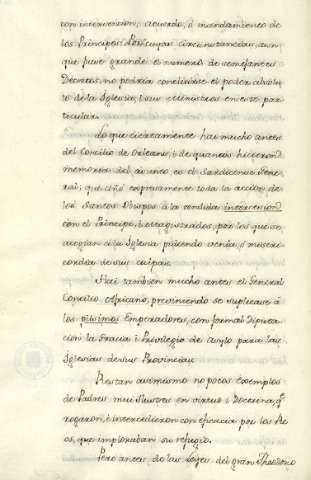 con intervencion, acuerdo, ò mandamiento de
los Principes. Por cuyas circunstancias, aun
que fuese grande el numero de semejantes
Decretos, no podria concluirse el poder absolu
to de la Iglesia, i sus Ministros en este par
ticular.
Lo que ciertamente hai mucho antes
del Concilio de Orleans, i de quantos hicieron
memoria del asunto, es el Sardicense Gene
ral; que ciñò expresamente toda la accion de
los Santos Obispos à la rendida intercesion
con el Principe, i Magistrados, por los que se
acogian à su Iglesia pidiendo venia, i miseri
cordia de sus culpas.
Hai tambien mucho antes el General
Concilio Africano, previniendo se suplicase à
los piisimos Emperadores, con formal Diputa
cion la Gracia i Privilegio de asylo para las
Iglesias de sus Provincias.
Restan asimismo no pocos exemplos
de Padres mui Ilustres en virtud i Doctrina q.e
rogaron, è intercedieron con eficacia por los Re
os, que imploraban su refugio.
Pero antes de las Leyes del gran Theodosio